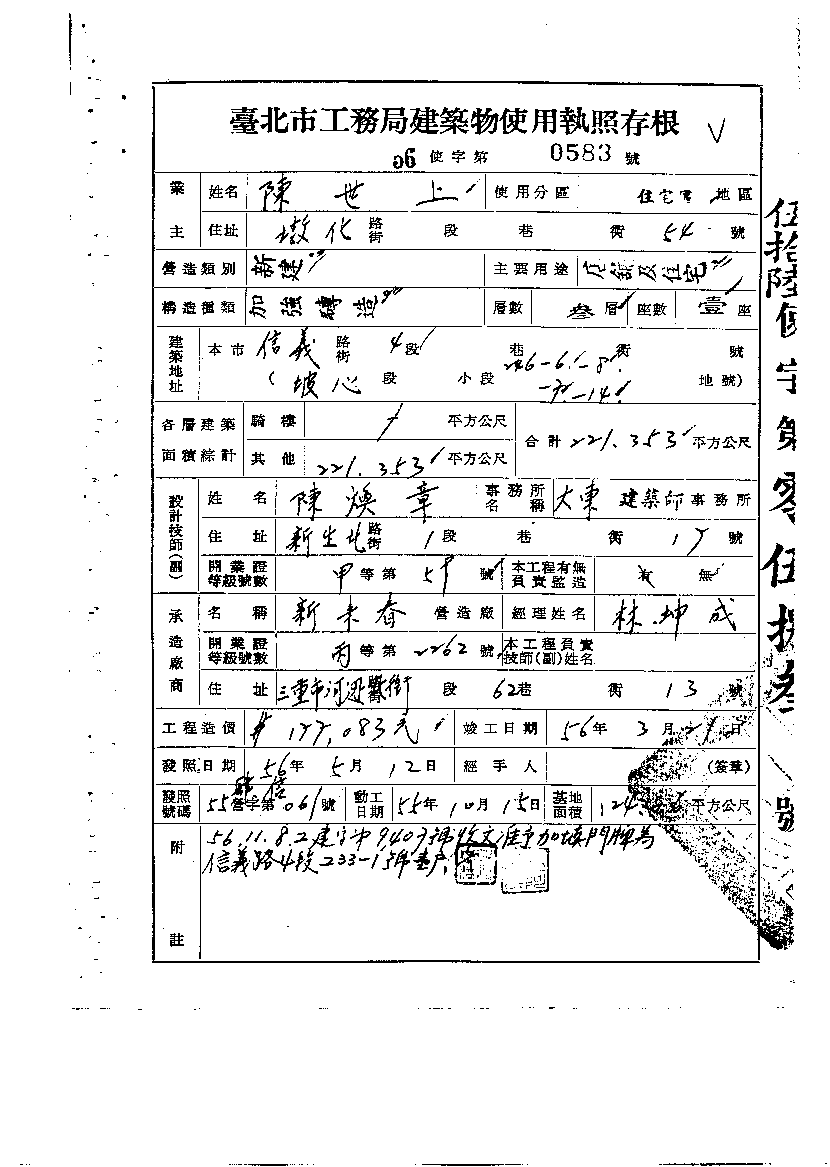 臺北市工務局建築物使用執照存根
56 使字第 0583 號
業主 姓名 陳世上 使用分區 住宅 地區
住址 敦化 路街 段 巷 衖 54 號
營造類別 新建 主要用途 店舖及住宅
構造種類 加強磚造 層數 叁層 座數 壹座
建築地址 本市 信義 路街 4段 巷 衖 號
(坡心 段 小段 246-6.-8. 地號)
-9.-14.
各層建築面積綜計 騎樓 平方公尺 合計 221.353 平方公尺
其他 221.353 平方公尺
設計技師(副) 姓名 陳煥章 事務所名稱 大東 建築師事務所
住址 新生北 路街 1段 巷 衖 17 號
開業證等級號數 甲等第 59 號 本工程有無負責監造 有 無
承造廠商 名稱 新未春 營造廠 經理姓名 林坤成
開業證等級號數 丙等第 2262 號 本工程負責技師(副)姓名
住址 三重市河邊街 段 62巷 衖 13 號
工程造價 177,083元 竣工日期 56年 3月 29日
發照日期 56年 5月 12日 經手人 (簽章)
發照號碼 55營字第 061 號 動工日期 55年 10月 15日 基地面積 124. 平方公尺
附註 56.11.8.2建字第9403號收文准予加填門牌為
信義路4段233-1號壹戶
伍拾陸使字第零伍捌叁號